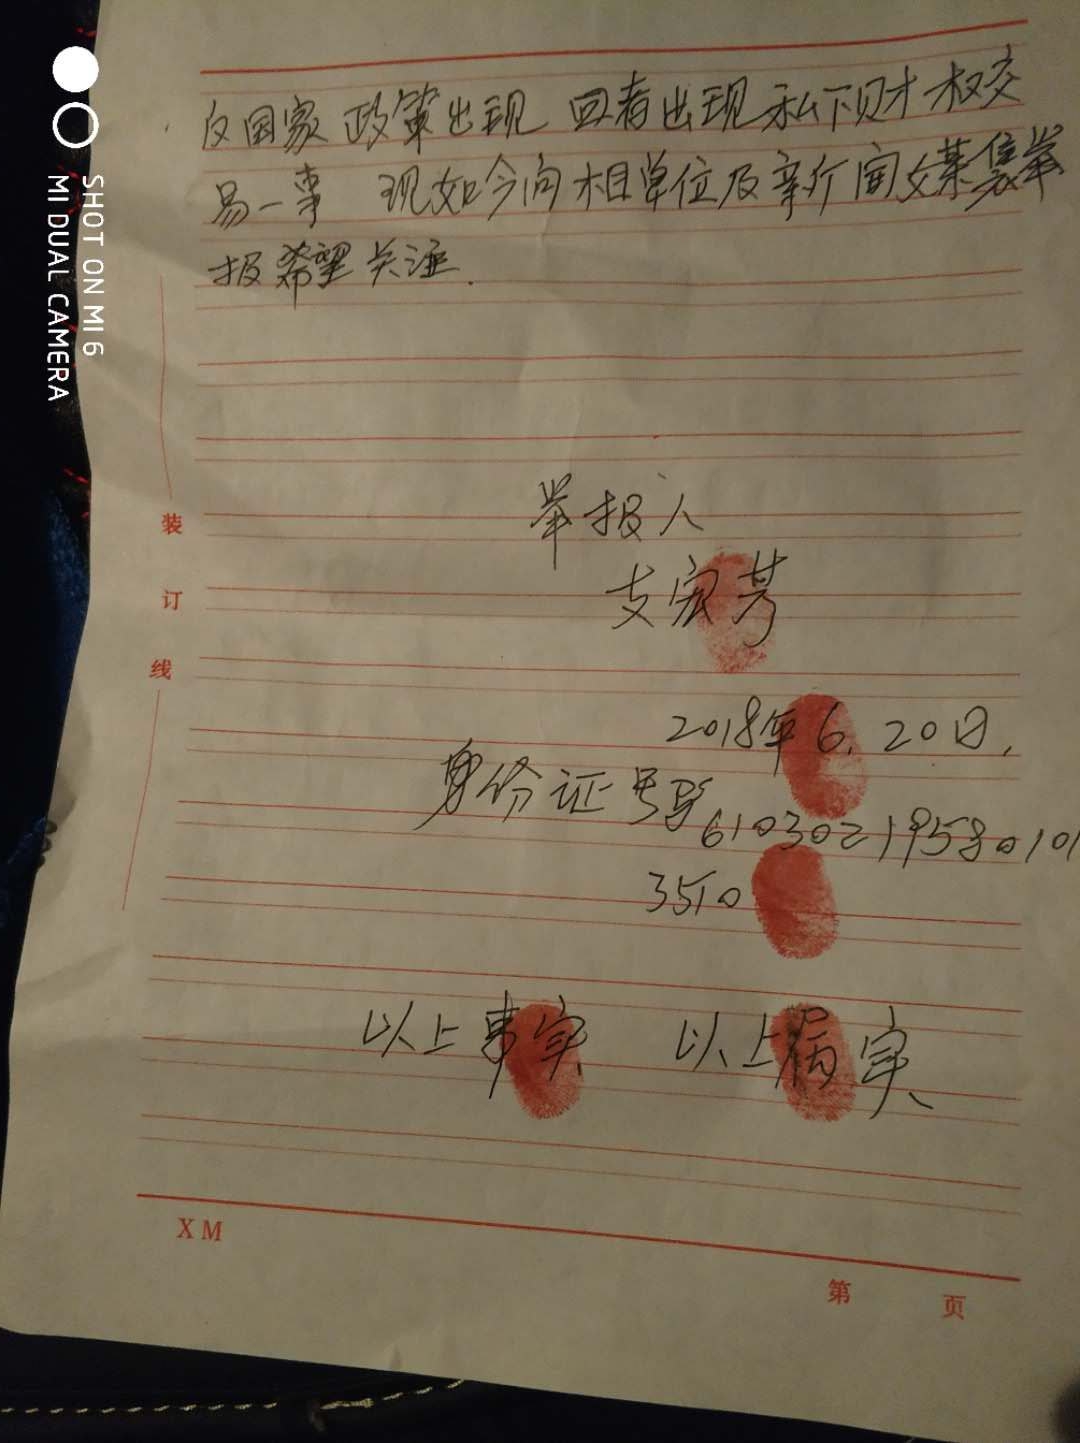 反国家政策出现 回者出现私下财权交
易一事 现如今向相单位及新闻媒 举
报希望关注.
举报人
支宏芳
2018年6.20日.
身份证号码
61030219580101
3510
以上事实 以上属实
装
订
线
XM
第 页
SHOT ON MI 6
MI DUAL CAMERA